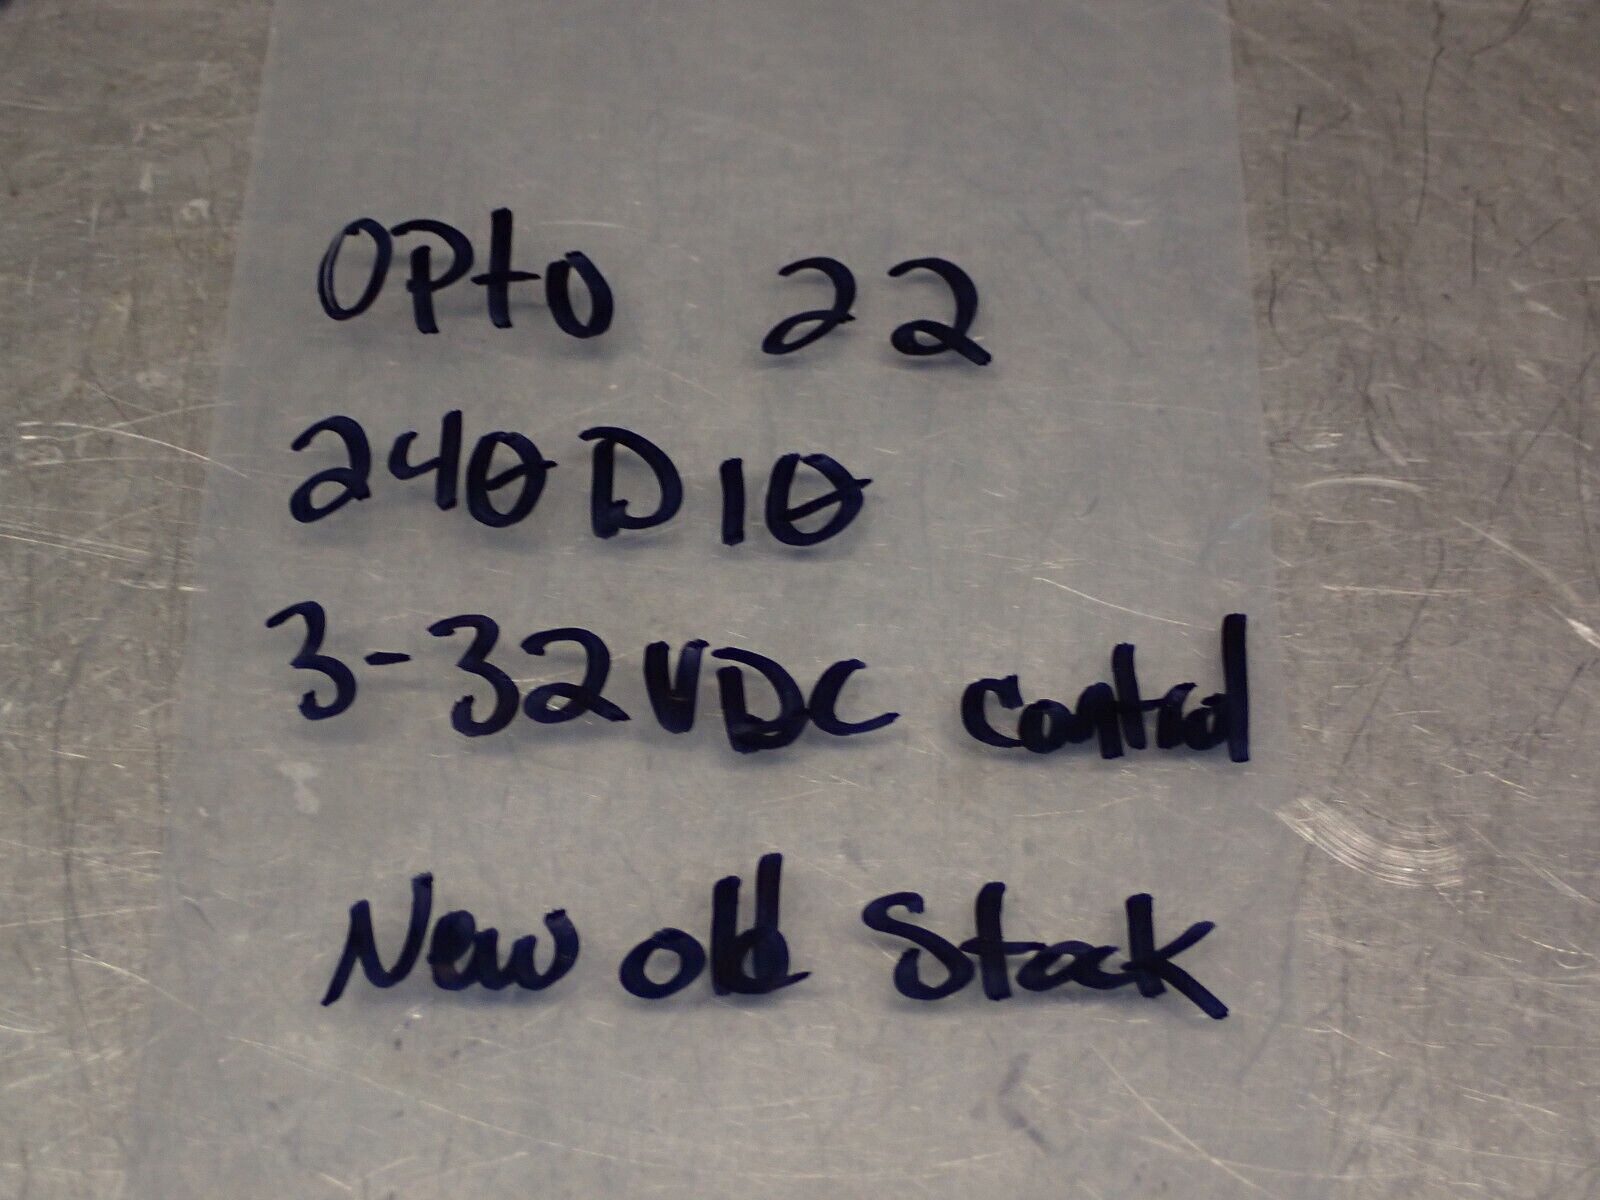 Opto 22
240D10
3-32VDC Control
New old Stock